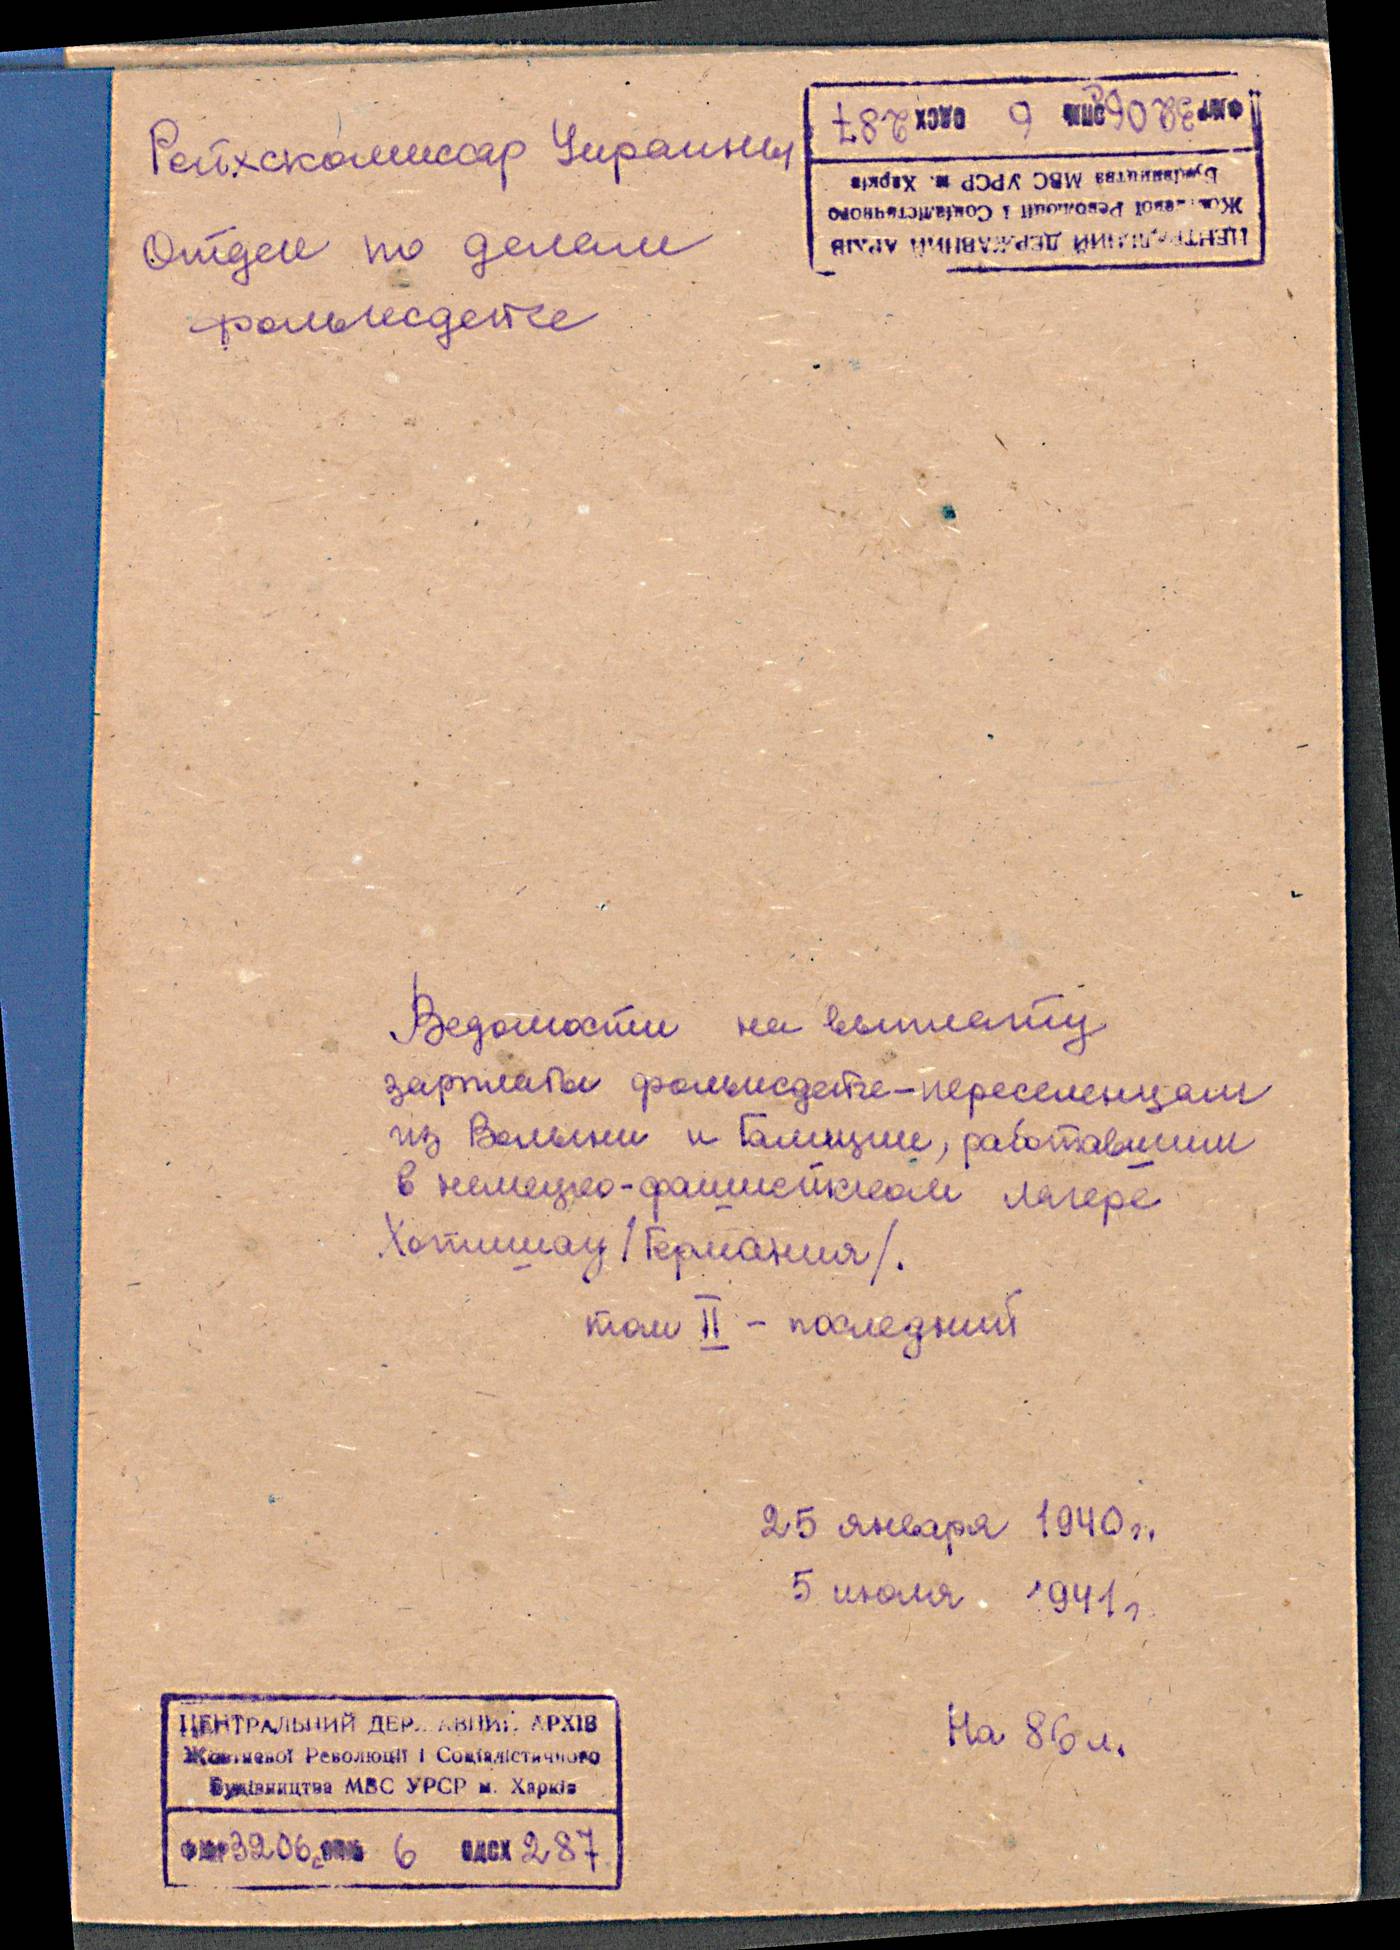 Рейхскомиссар Украины
Отдел по делам
фольксдейче
ФОНР 3206с ОПИС 6 ОДСХ 287
ЦЕНТРАЛЬНИЙ ДЕРЖАВНИЙ АРХІВ
Жовтневої Революції і Соціалістичного
Будівництва МВС УРСР м. Харків
Ведомости на выплату
зарплаты фольксдейче-переселенцам
из Волыни и Галиции, работавшим
в немецко-фашистском лагере
Хотишау /Германия/.
том II - последний
25 января 1940 г.
5 июля 1941 г.
На 86 л.
ЦЕНТРАЛЬНИЙ ДЕРЖАВНИЙ АРХІВ
Жовтневої Революції і Соціалістичного
Будівництва МВС УРСР м. Харків
3206с 6 ОДСХ 287